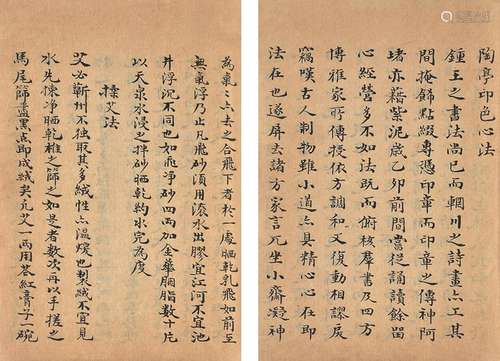 陶亭印色心法
鍾王之書法尚已而輞川之詩畫亦工其
間掩飾點綴專憑印章而印章之傳神阿
堵亦藉紫泥歲乙卯前間嘗從誦讀餘留
心經營多不如法既而俯核群書及四方
博雅家所傳授依方調和又復動相謬戾
竊嘆古人制物雖小道亦具精心心在即
法在也遂屏去諸方家言兀坐小齋凝神
亦去之合飛下者於一處晒乾乳飛如前至
無氣浮乃止凡飛砂須用滾水出膠宜江河不宜池
井浮沉不同也如飛淨砂四兩加金華胭脂數十片
以天泉水浸也拌砂晒乾約水完為度
揉艾法
艾必蘄州不独取其多絨性亦溫煖也製絨不宜見
水先揀净晒乾椎之篩之如是者數次再以手搓之
馬尾篩盡黑点即成絨矣凡艾一兩用茶紅膏子一碗